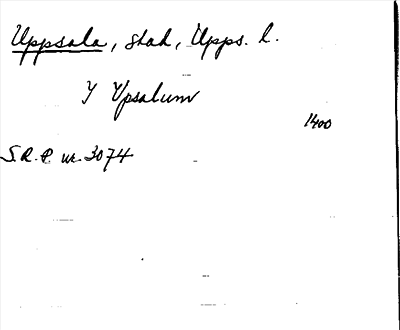 Uppsala, stad, Upps. l.
Y Vpsalum
1400
S.R.P. nr. 3074